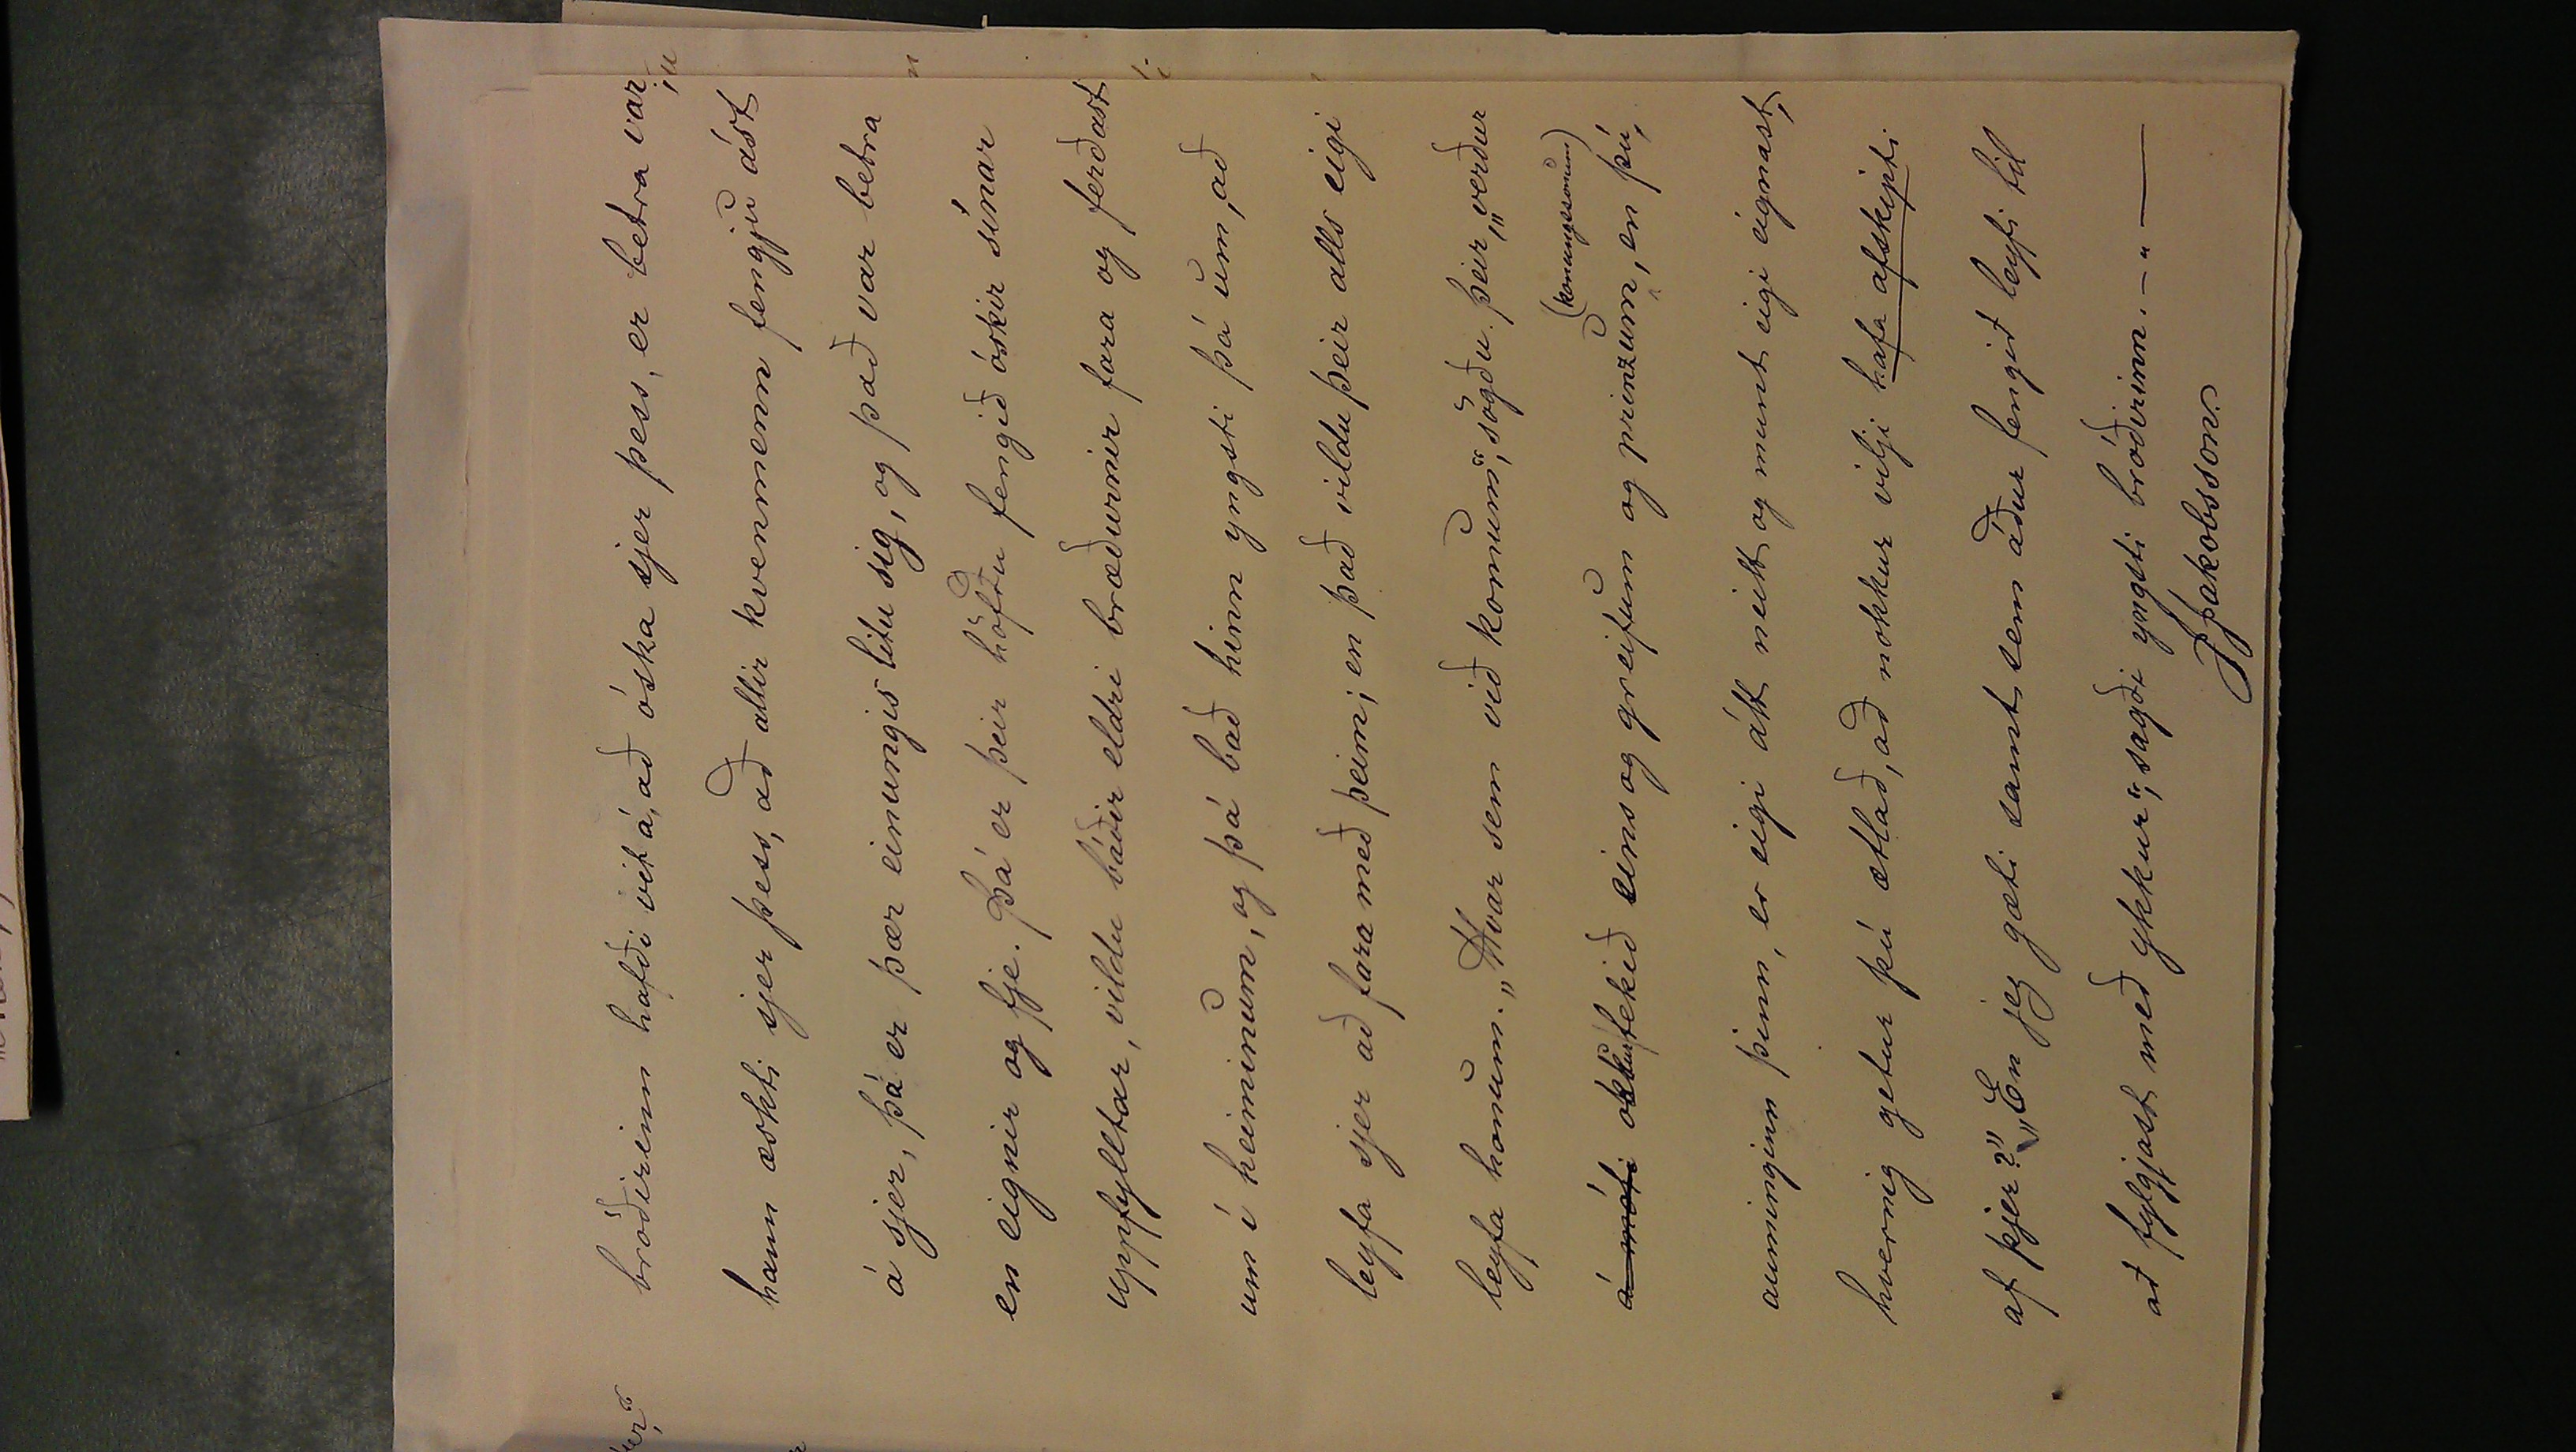 bróðirinn hafði vit á, að óska sjer þess, er betra var,
hann æskti sjer þess, að allir kvennmenn fengju ást
á sjer, þá er þær einungis litu sig, og það var betra
en eignir og fje. Þá er þeir höfðu fengið óskir sínar
uppfylltar, vildu báðir eldri bræðurnir fara og ferðast
um í heiminum, og þá bað hinn yngsti þá um, að
leyfa sjer að fara með þeim; en það vildu þeir alls eigi
leyfa honum. „Hvar sem við komum“, sögðu þeir, „verður
(konungssonum)
á móti okkur tekið eins og greifum og prinzum, en þú,
auminginn þinn, er eigi átt neitt og munt eigi eignast,
hvernig getur þú ætlað, að nokkur vilji hafa afskipti
af þjer?” „En jeg gæti samt sem áður fengið leyfi til
að fylgjast með ykkur“, sagði yngsti bróðirinn. – „ —
Jakobsson.